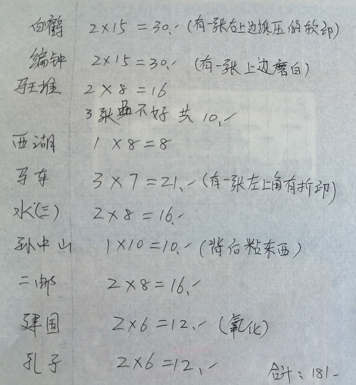 白鹤 2×15=30.- (有一张右上边挨压的软印)
编钟 2×15=30.- (有一张上边磨白)
马王堆 2×8=16
3张品不好共10.-
西湖 1×8=8
马车 3×7=21.- (有一张左上角有折印)
水(三) 2×8=16.-
孙中山 1×10=10.- (背后粘东西)
二邮 2×8=16.-
建国 2×6=12.- (氧化)
孔子 2×6=12.-
合计: 181-